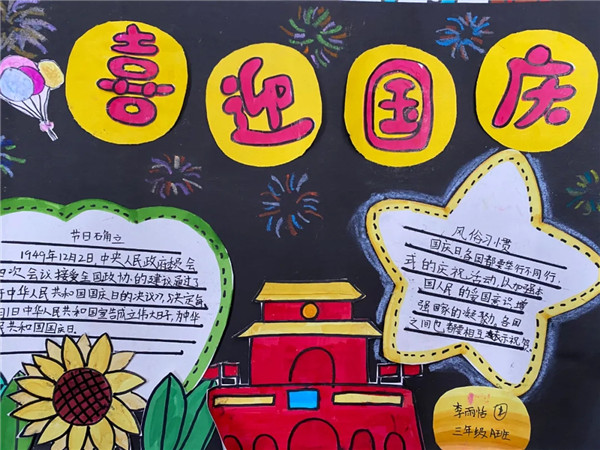 喜迎国庆
节日确立
1949年12月2日,中央人民政府委员会
四次会议接受全国政协的建议,通过了
中华人民共和国国庆日的决议》,决定每
月1日中华人民共和国宣告成立伟大日子,为中华
民共和国国庆日。
风俗习惯
国庆日各国都要举行不同形
式的庆祝活动,以加强本
国人民的爱国意识,增
强国家的凝聚力。各国
之间也都要相互表示祝贺
李雨恬
三年级A班